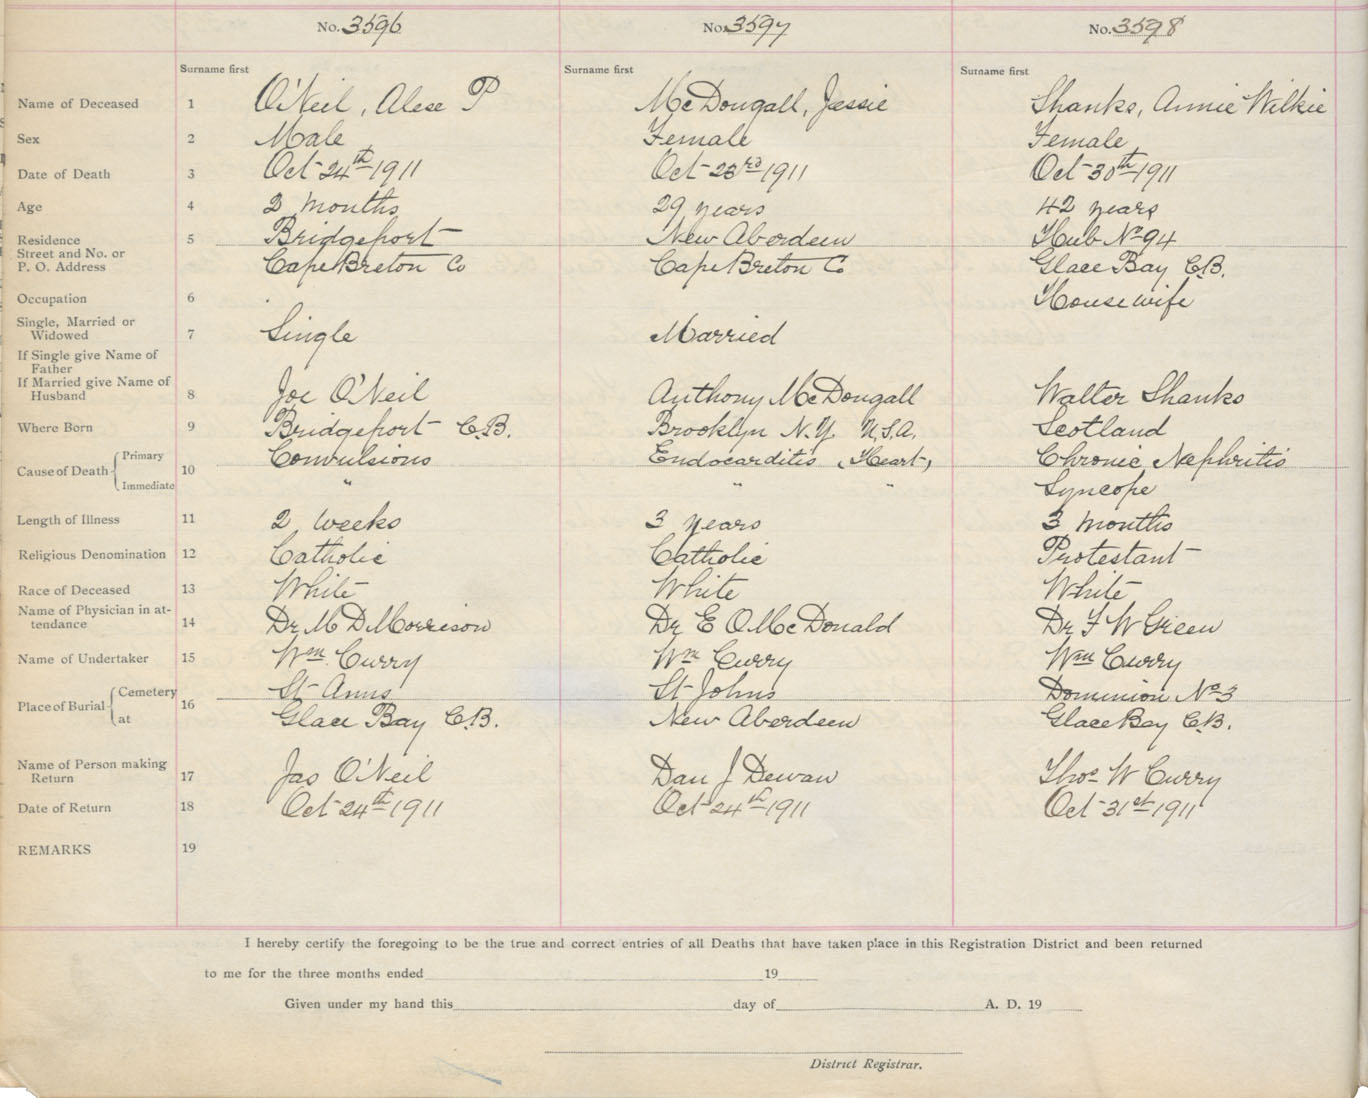 No. 3596 No. 3597 No. 3598
Surname first Surname first Surname first
Name of Deceased 1 O'Neil, Alese P McDougall, Jessie Shanks, Annie Wilkie
Sex 2 Male Female Female
Date of Death 3 Oct 24th 1911 Oct 23rd 1911 Oct 30th 1911
Age 4 2 months 29 years 42 years
Residence 5 Bridgeport New Aberdeen Hub No 94
Street and No. or
P. O. Address Cape Breton Co Cape Breton Co Glace Bay C.B.
Occupation 6 Housewife
Single, Married or
Widowed 7 Single Married
If Single give Name of
Father
If Married give Name of
Husband 8 Joe O'Neil Anthony McDougall Walter Shanks
Where Born 9 Bridgeport C.B. Brooklyn N.Y. U.S.A. Scotland
Cause of Death Primary 10 Convulsions Endocarditis (Heart) Chronic Nephritis
Immediate " " " Syncope
Length of Illness 11 2 weeks 3 years 3 months
Religious Denomination 12 Catholic Catholic Protestant
Race of Deceased 13 White White White
Name of Physician in at-
tendance 14 Dr M D Morrison Dr E O McDonald Dr F W Green
Name of Undertaker 15 Wm Curry Wm Curry Wm Curry
Place of Burial Cemetery 16 St Anns St Johns Dominion No 3
at Glace Bay C.B. New Aberdeen Glace Bay C.B.
Name of Person making
Return 17 Jas O'Neil Dan J Dewan Thos W Curry
Date of Return 18 Oct 24th 1911 Oct 24th 1911 Oct 31st 1911
REMARKS 19
I hereby certify the foregoing to be the true and correct entries of all Deaths that have taken place in this Registration District and been returned
to me for the three months ended 19
Given under my hand this day of A. D. 19
District Registrar.